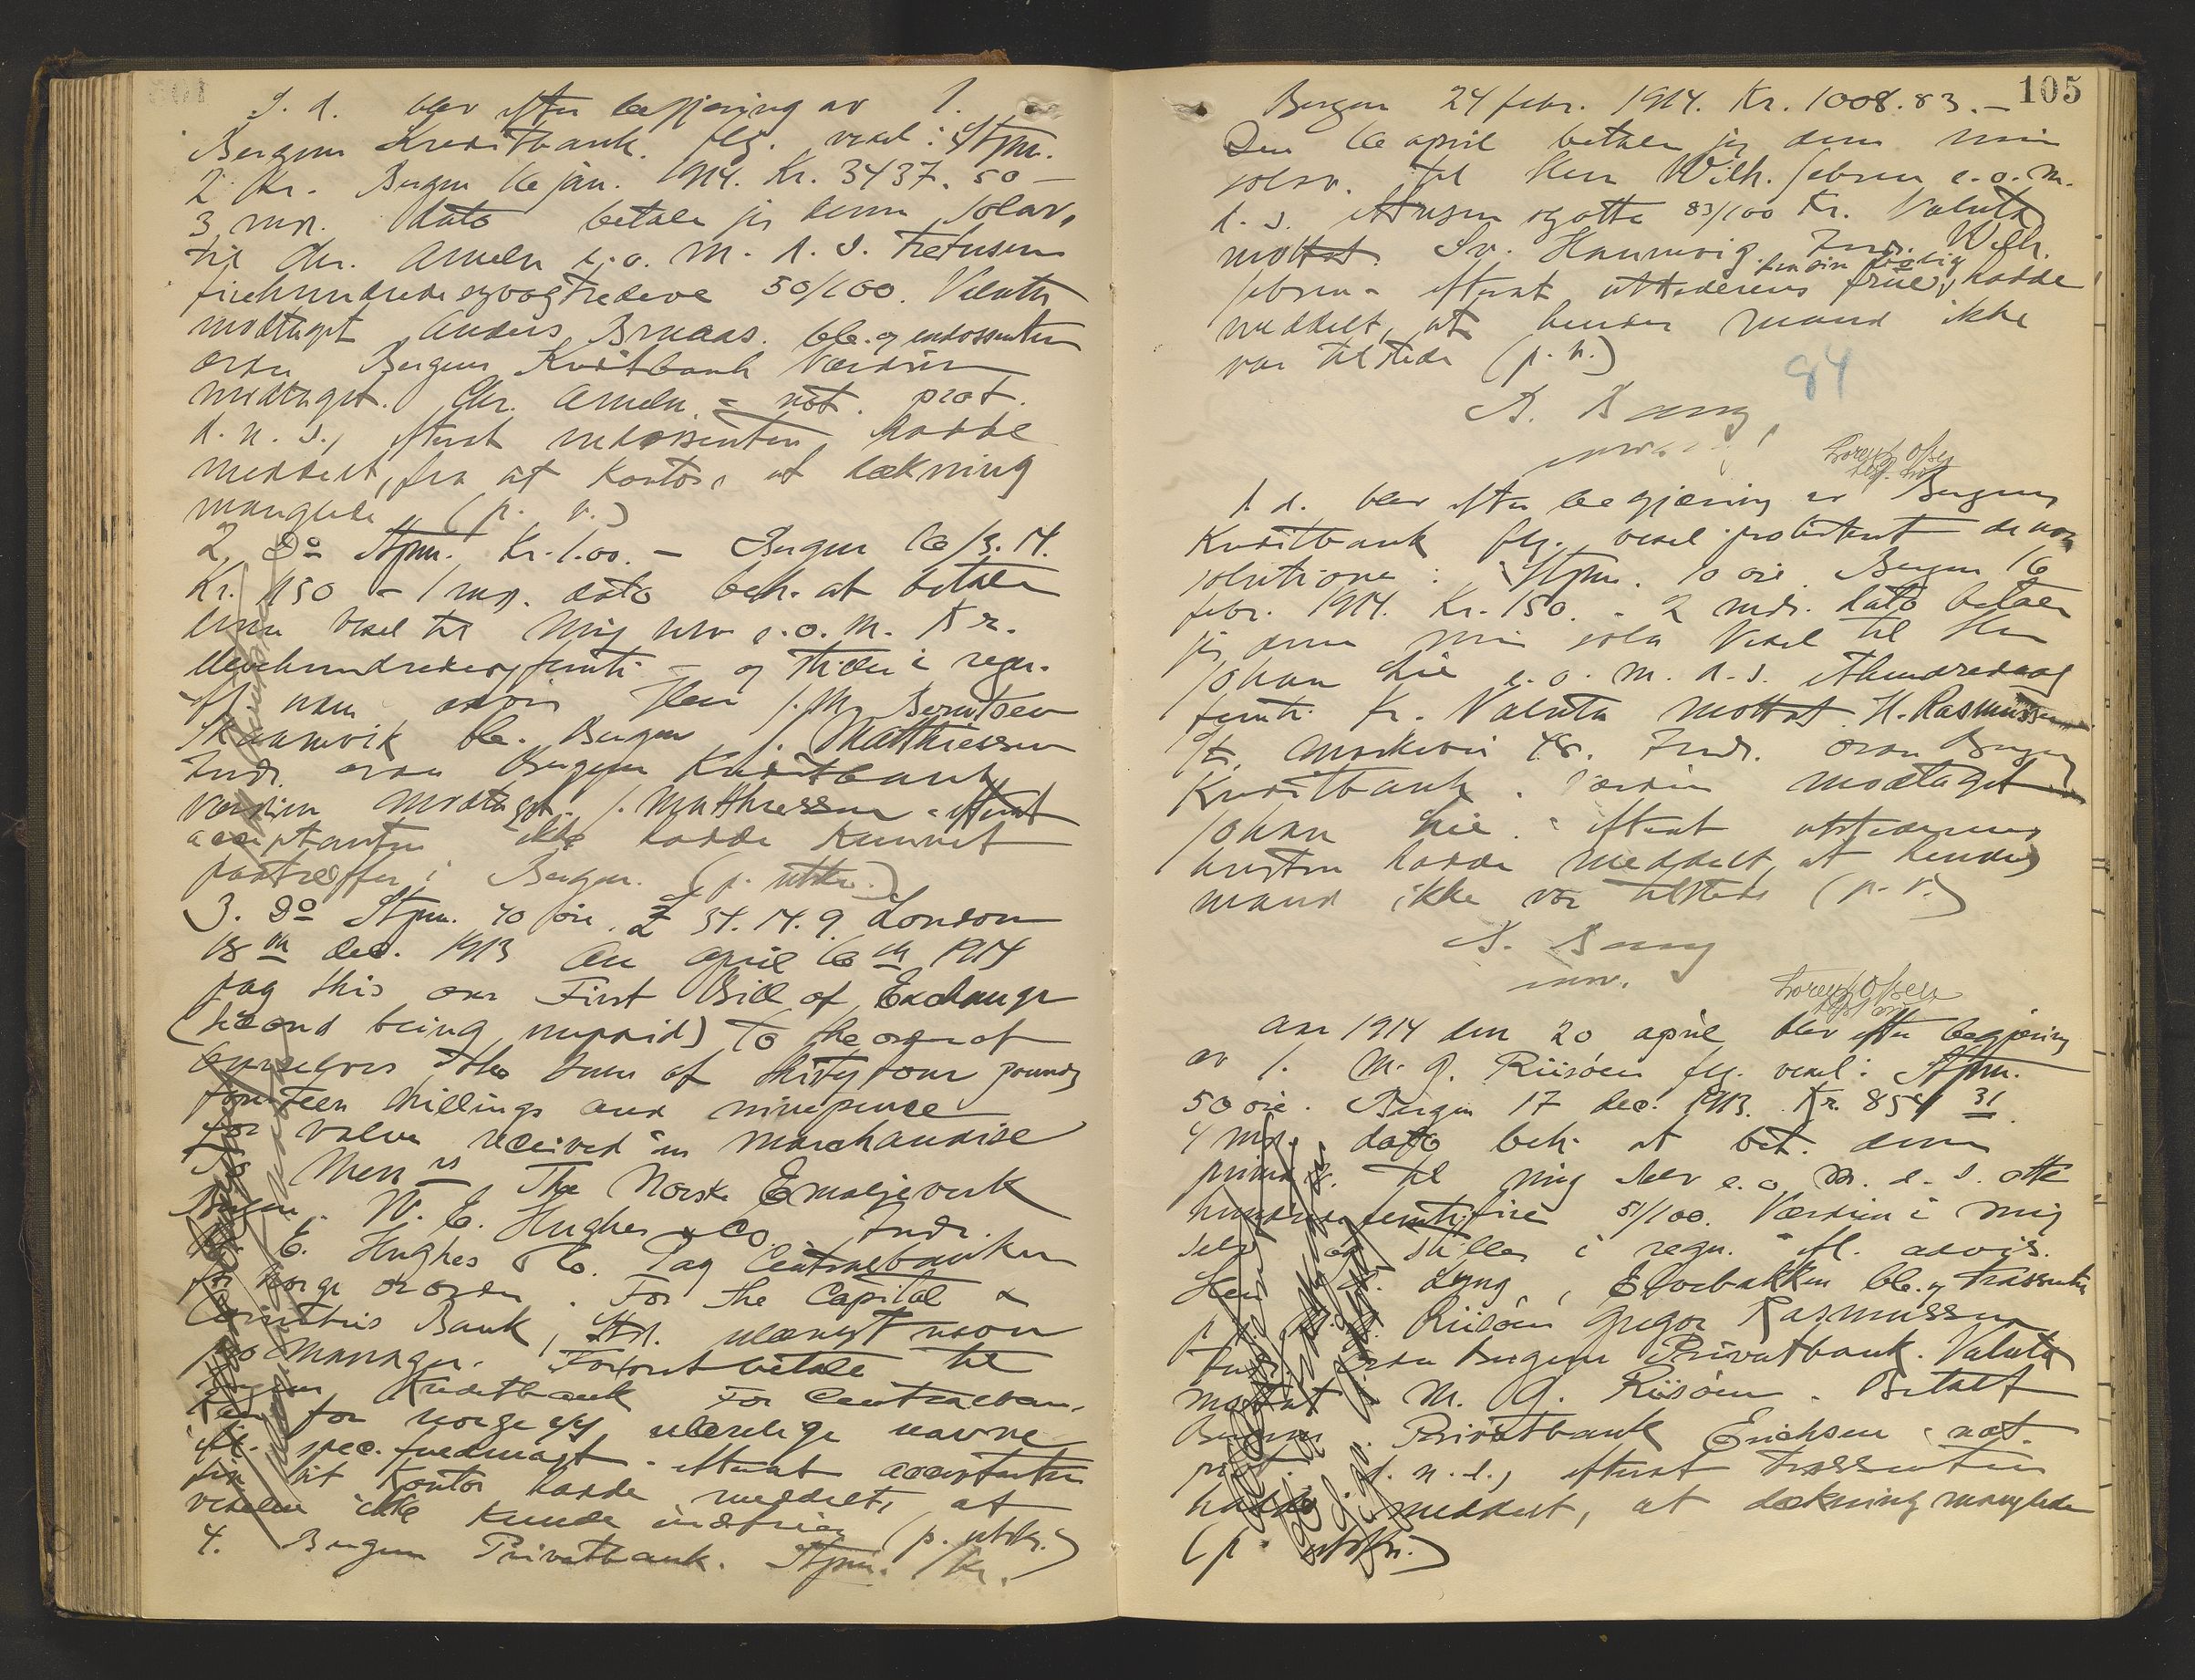 S. d. blev efter begjæring av 1.
Bergens Kreditbank flg. vexel: Stpm.
2 Kr. Bergen 16 jan. 1914. Kr. 3437.50 –
3 md. dato betaler jeg denne solav.
til Chr. Ameln e.o. M. k. S. Tretusen
firehundrede syvogtredeve 50/100. Valuta
modtaget Anders Bruaas. bl. og endossenten
ordre Bergens Kreditbank Værdien
modtaget. Chr. Ameln – not. prot.
d. n. s., efterat endossenten hadde
meddelt, fra sit Kontor, at dækning
manglede (p. v.)
2. Do Stpm. Kr. 1.00. – Bergen 16/3.14.
Kr. 1150 – 1 md. dato beh. at betale
denne vexel til mig selv e.o. M. Kr.
ellevehundrede og femti – og stilles i regn.
ifl. uden advis Herr J. M. Berntsen
Skaanevik bl. Bergen J. Matthiessen
Indr. ordre Bergens Kreditbank
værdien modtaget. J. Matthiessen – efterat
acceptanten ikke hadde kunnet
paatræffes i Bergen. (p. utskr.)
3. Do Stpm. 40 øre. £ 34.14.9 London
18th dec. 1913 On april 16th 1914
pay this our First Bill of Exchange
(second being unpaid) To the order of
ourselves the sum of thirtyfour pounds
fourteen shillings and ninepence
for value received in marchandise
To Messrs The Norske Emaljeverk
Bergen. W. E. Hughes & Co. Indr.
W. E. Hughes & Co. Pay Centralbanken
for Norge or order. For The Capital &
Counties Bank, Ltd. ulæseligt navn
pro Manager. Forfront betale til
Bergens Kreditbank For Centralban-
ken for Norge e/y ulæselige navne
ifl. spec. fuldmagt – efterat acceptanten
fra sit Kontor hadde meddelt, at
vekselen ikke kunde indfries (p. utskr.)
4. Bergens Privatbank. Stpm. 1 Kr.
105
Bergen 24 febr. 1914. Kr. 1008.83. –
Den 16 april betaler jeg denne min
solav. til Herr Wilh. Jebsen e.o.m.
d. s. Ettusen og otte 83/100 Kr. Valuta
mottat. Sv. Hannevig. Indr. Wilh.
Jebsen – efterat utstederens frue, hadde
meddelt, at hendes mand ikke
var tilstede (p. v.)
84
A. Bang
S. d. blev efter begjæring av Bergens
Kreditbank flg. vexel protestert de non
solutione: Stpm. 10 øre. Bergen 16
febr. 1914. Kr. 150. – 2 mdr. dato betaler
jeg denne min sola Vexel til Herr
Johan Lie e.o.m. d.s. Ethundrede og
femti Kr. Valuta mottat H. Rasmussen
Markevei 48. Indr. ordre Bergens
Kreditbank. Værdien modtaget
Johan Lie. – efterat utstederens
hustru hadde meddelt, at hendes
mand ikke var tilstede (p. v.)
A. Bang
Aar 1914 den 20 april blev efter begjæring
av 1. M. G. Riisøen flg. vexel: Stpm.
50 øre. Bergen 17 dec. 1913. Kr. 854 31
4 md. dato beh. at bet. denne
prima v. til mig selv e.o.m. d. s. otte
hundrede femtifire 31/100. Værdien i mig
selv og stilles i regn. ifl. advis.
Herr Lyng, Elvebakken bl. og trassenten
Riisøen Gregor Rasmussen
Indr. ordre Bergens Privatbank. Valuta
mottat M. G. Riisøen. Betalt
Bergens Privatbank Erichsen – not.
prot. d. n. s., efterat trassenten
hadde meddelt, at dækning manglede
(p. utskr.)